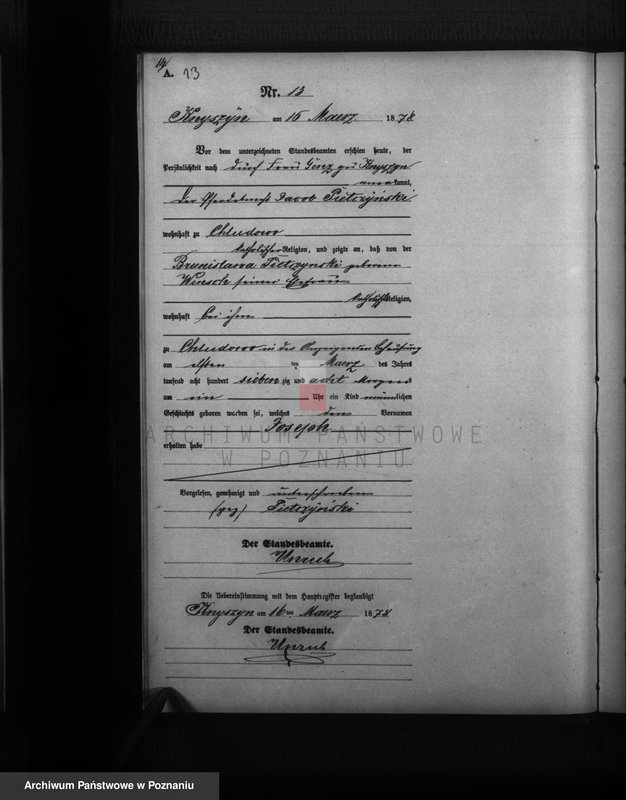 14
A. 13
Nr. 13
Knyszyn am 16 Maerz 1878.
Vor dem unterzeichneten Standesbeamten erschien heute, der
Persönlichkeit nach durch Frau Genz zu Knyszyn
kannt,
der Pferdeknecht Jacob Pietrzyński
wohnhaft zu Chludowo
katholischer Religion, und zeigte an, daß von der
Bronislawa Pietrzynski geborene
Wunsch seiner Ehefrau
katholischer Religion,
wohnhaft bei ihm
zu Chludowo in des Anzeigenden Behausung
am elften ten Maerz des Jahres
tausend acht hundert sieben zig und acht Morgens
um ein Uhr ein Kind männlichen
Geschlechts geboren worden sei, welches den Vornamen
Joseph
erhalten habe
Vorgelesen, genehmigt und unterschrieben
(gez) Pietrzyński
Der Standesbeamte.
Unruh
Die Uebereinstimmung mit dem Hauptregister beglaubigt
Knyszyn am 16ten Maerz 1878
Der Standesbeamte.
Unruh
ARCHIWUM PAŃSTWOWE
W POZNANIU
Archiwum Państwowe w Poznaniu